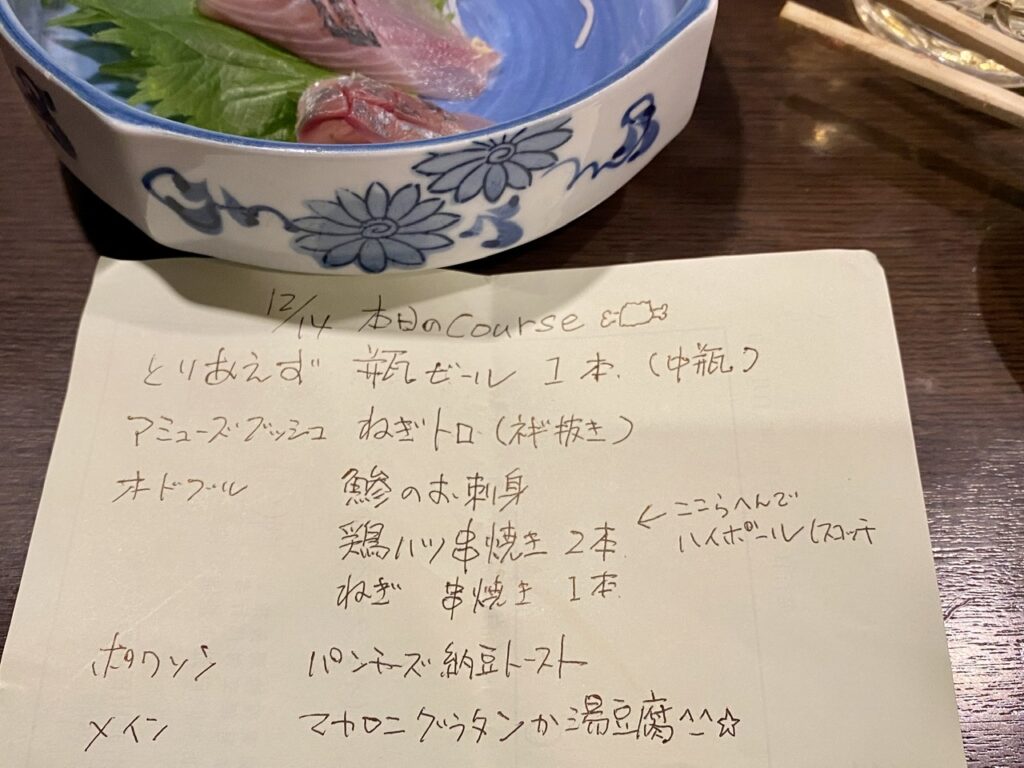 12/14 本日のCourse
とりあえず 瓶ビール 1本.(中瓶)
アミューズブッシュ ねぎトロ(ネギ抜き)
オードブル 鯵のお刺身
鶏ハツ串焼き 2本.
← ここらへんで
ハイボール(スコッチ
ねぎ 串焼き 1本.
ポワソン パンチーズ納豆トースト
メイン マカロニグラタンか湯豆腐^^☆